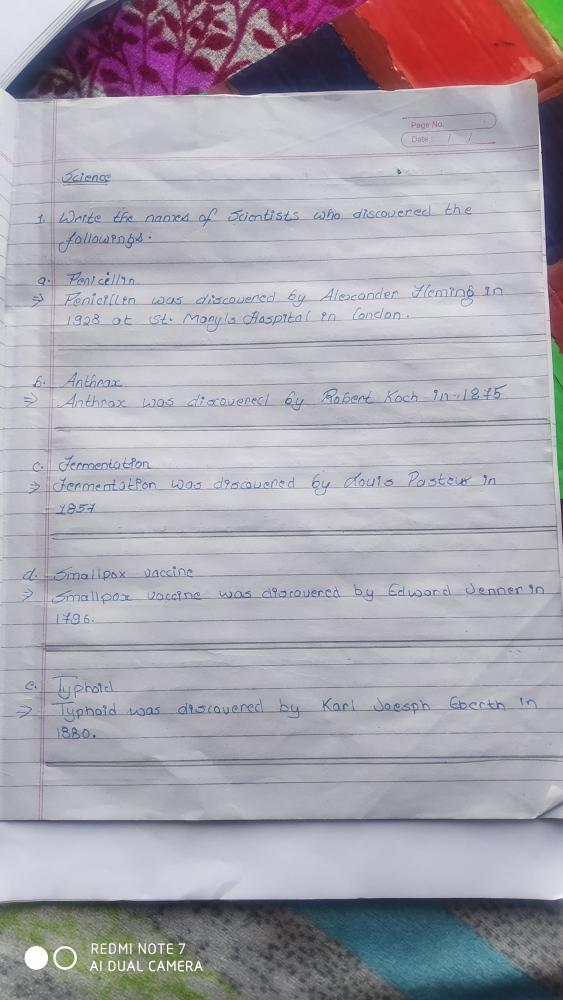 Page No.
Date / /
Science
1. Write the names of Scientists who discovered the
followings.
a. Penicillin
⇒ Penicillin was discovered by Alexander Fleming in
1928 at St. Mary's Hospital in London.
b. Anthrax
⇒ Anthrax was discovered by Robert Koch in 1875
c. Fermentation
⇒ Fermentation was discovered by Louis Pasteur in
1857
d. Smallpox vaccine
⇒ Smallpox vaccine was discovered by Edward Jenner in
1796.
e. Typhoid
⇒ Typhoid was discovered by Karl Joesph Eberth in
1880.
REDMI NOTE 7
AI DUAL CAMERA